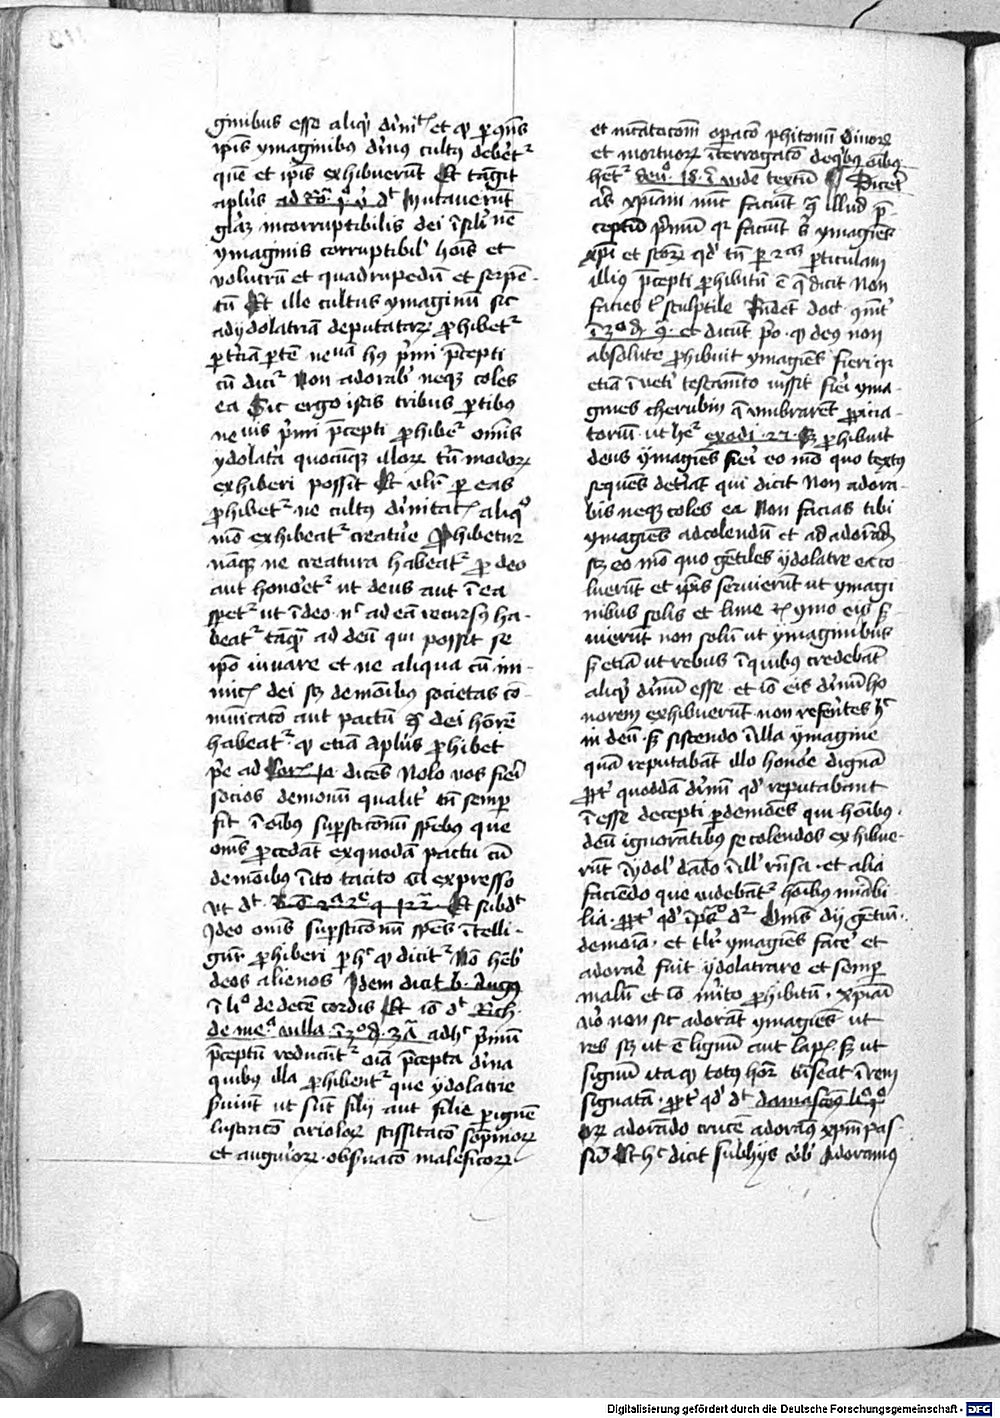 ginibus esse aliqd diuit et qd per qns
ipis ymaginibus diuinus cultus debet
quem et ipis exhibuerunt Et tangit
aplus ad Ro. 1 dt Mutauerunt
glam incorruptibilis dei in sili
ymaginis corruptibil hois et
volucrum et quadrupedum et serpen
tum Et ille cultus ymaginum sic
ad ydolatriam deputatorum prohibetur
per terciam partem huius primi precepti
cum dicitur Non adorabis neque coles
ea Sic ergo istis tribus partibus
primi precepti prohibetur omnis
ydolatria quocumque illorum trium modorum
exhiberi possit Et vult per eas
prohibetur ne cultus diuinitatis aliquo
modo exhibeatur creature Prohibetur
namque ne creatura habeatur pro deo
aut honoretur ut deus aut in ea
speretur ut in deo nec ad eam recursus ha
beatur tamquam ad deum qui possit se
ipso iuuare et ne aliqua cum in
imicis dei scilicet demonibus societas co
municatio aut pactum dei honorem
habeatur quod etiam Aplus prohibet
prime ad Cor. 10 dicens Nolo vos fieri
socios demonum qualiter tamen semper
fit in omnibus supersticionum speciebus que
omnes procedant ex quodam pactu cum
demonibus inito tacito vel expresso
vt dt Et subdt
Ideo omnis supersticionum species intelli
gitur prohiberi per hoc quod dicitur Non habebis
deos alienos Idem dicit b. Augus
in lio de decem cordis Et ideo dt Rich.
de me. villa in 3o d. 37 adhuc primum
preceptum reducuntur omnia precepta diuina
quibus illa prohibentur que ydolatrie
seruiunt ut sunt filii aut filie per ignem
lustracio sciscitatio sompniorum
et auguriorum obseruacio maleficorum
phitonum diuinorum
et mortuorum interrogatio de quibus omnibus
habetur deut. 18. vide textum Dicet
aliquis xpiani nunc faciunt contra illud pre
ceptum primum quia faciunt sibi ymagines
xpi et sanctorum quod tamen per 2am particulam
illius precepti prohibitum est que dicit Non
facies tibi sculptile Respondent doct. communiter
in 3o d. 9. et dicunt primo quod deus non
absolute prohibuit ymagines fieri quia
etiam in veteri testamento iussit fieri yma
gines cherubin que vmbrarent propicia
torium ut habetur exodi 25. Sed prohibuit
deus ymagines fieri eo modo quo textus
sequens declarat qui dicit Non adora
bis neque coles ea Non facias tibi
ymagines ad colendum et ad adorandum
scilicet eo modo quo gentiles ydolatre ea co
luerunt et ipis seruierunt ut ymagi
nibus solis et lune etc ymo eis ser
uierunt non solum ut ymaginibus
sed etiam ut rebus in quibus credebant
aliquid diuinum esse et ideo eis diuinum ho
norem exhibuerunt non referentes hoc
in deum sed sistendo in illa ymagine
quam reputabant illo honore dignam
propter quoddam diuinum quod reputabant
in esse decepti per demones qui hominibus
deum ignorantibus se colendos exhibue
runt in ydolis dando in illis responsa et alia
faciendo que videbantur hominibus mirabi
lia propter quod in psalmo dicitur Omnes dii gentium
demonia et taliter ymagines facere et
adorare fuit ydolatrare et semper
malum et ideo merito prohibitum xpiani
vero non sic adorant ymagines ut
res scilicet ut est lignum aut lapis sed ut
signum ita quod totus honor transeat in rem
signatam propter quod dt damascenus
adorando crucem adoramus xpm pas
sum Et hoc dicit sub hiis verbis Adoramus
Digitalisierung gefördert durch die Deutsche Forschungsgemeinschaft - DFG